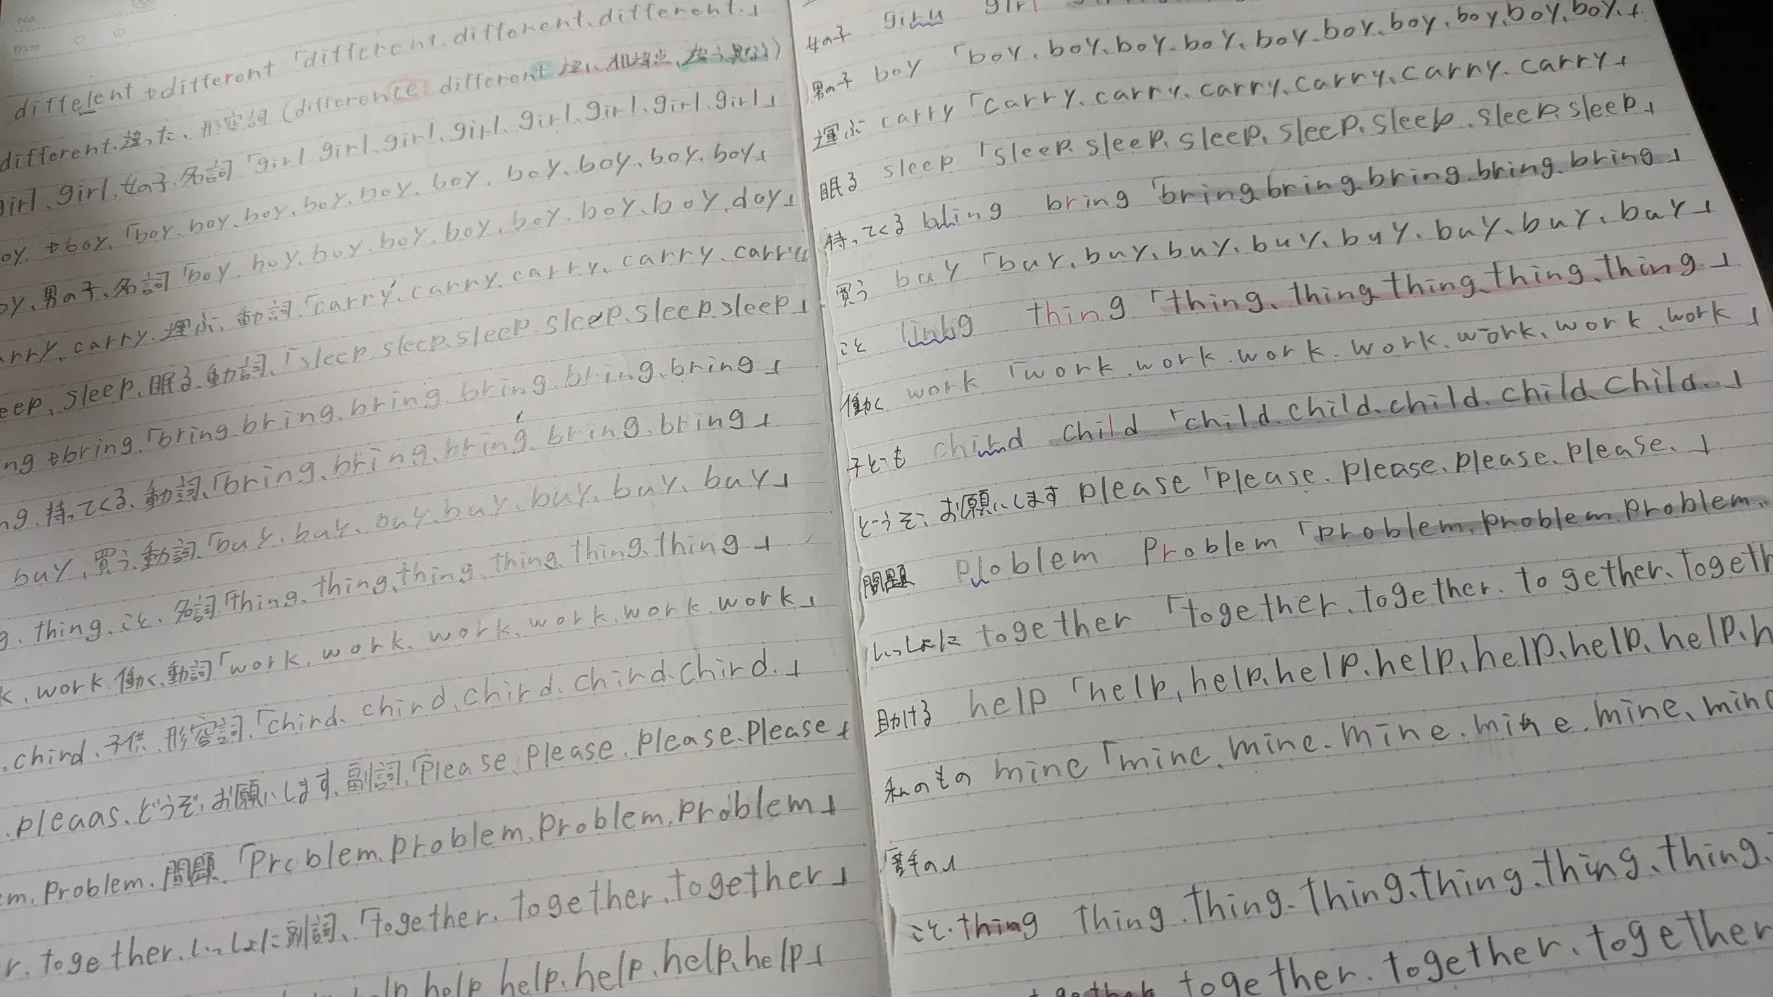 No.
Date
diffelent →different「different.different.different.」
different.違った、形容詞(difference different 違い、相違点、違う異なる)
girl、girl、女の子、名詞「girl girl、girl、girl、girl、girl、girl、girl」
oy →boy、「boy.boy、boy、boy、boy、boy、boy、boy、boy」
oy、男の子、名詞「boy、boy、boy、boy、boy、boy、boy、boy、doy」
arry、carry、運ぶ、動詞「carry、carry、carry、carry、carry、carry
eep、sleep、眠る、動詞、「sleep sleep、sleep、sleep、sleep、sleep」
ng →bring、「bring、bring、bring、bring、bring、bring」
ng、持ってくる、動詞、「bring、bring、bring、bring、bring、bring」
buy、買う、動詞、「buy、buy、buy、buy、buy、buy、buy」
g、thing、こと、名詞「thing、thing、thing、thing、thing、thing」
k、work、働く、動詞「work、work、work、work、work、work」
.chird、子供、形容詞、「chird、chird、chird、chird、chird.」
.pleaas、どうぞ、お願いします、副詞、「Please、please、please、please」
em、problem、問題、「Problem、problem、problem、problem」
r、together、いっしょに副詞、「together、together、together」
help help、help、help、help」
女の子 girl
男の子 boy「boy、boy、boy、boy、boy、boy、boy、boy、boy」
運ぶ carry「carry、carry、carry、carry、carry、carry」
眠る sleep「sleep、sleep、sleep、sleep、sleep、sleep、sleep」
持ってくる bling bring「bring bring、bring、bring、bring」
買う buy「buy、buy、buy、buy、buy、buy、buy、buy」
こと thing「thing、thing、thing、thing、thing」
働く work「work、work、work、work、work、work、work」
子ども child「child、child、child、child、child.」
どうぞ、お願いします please「please、please、please、please、」
問題 ploblem problem「problem、problem、problem、
いっしょに together「together、together、together、togeth
助ける help「help、help、help、help、help、help、help、h
私のもの mine「mine、mine、mine、mine、mine、min
苦手の人
こと・thing thing、thing、thing、thing、thing、thing、
together、together、together